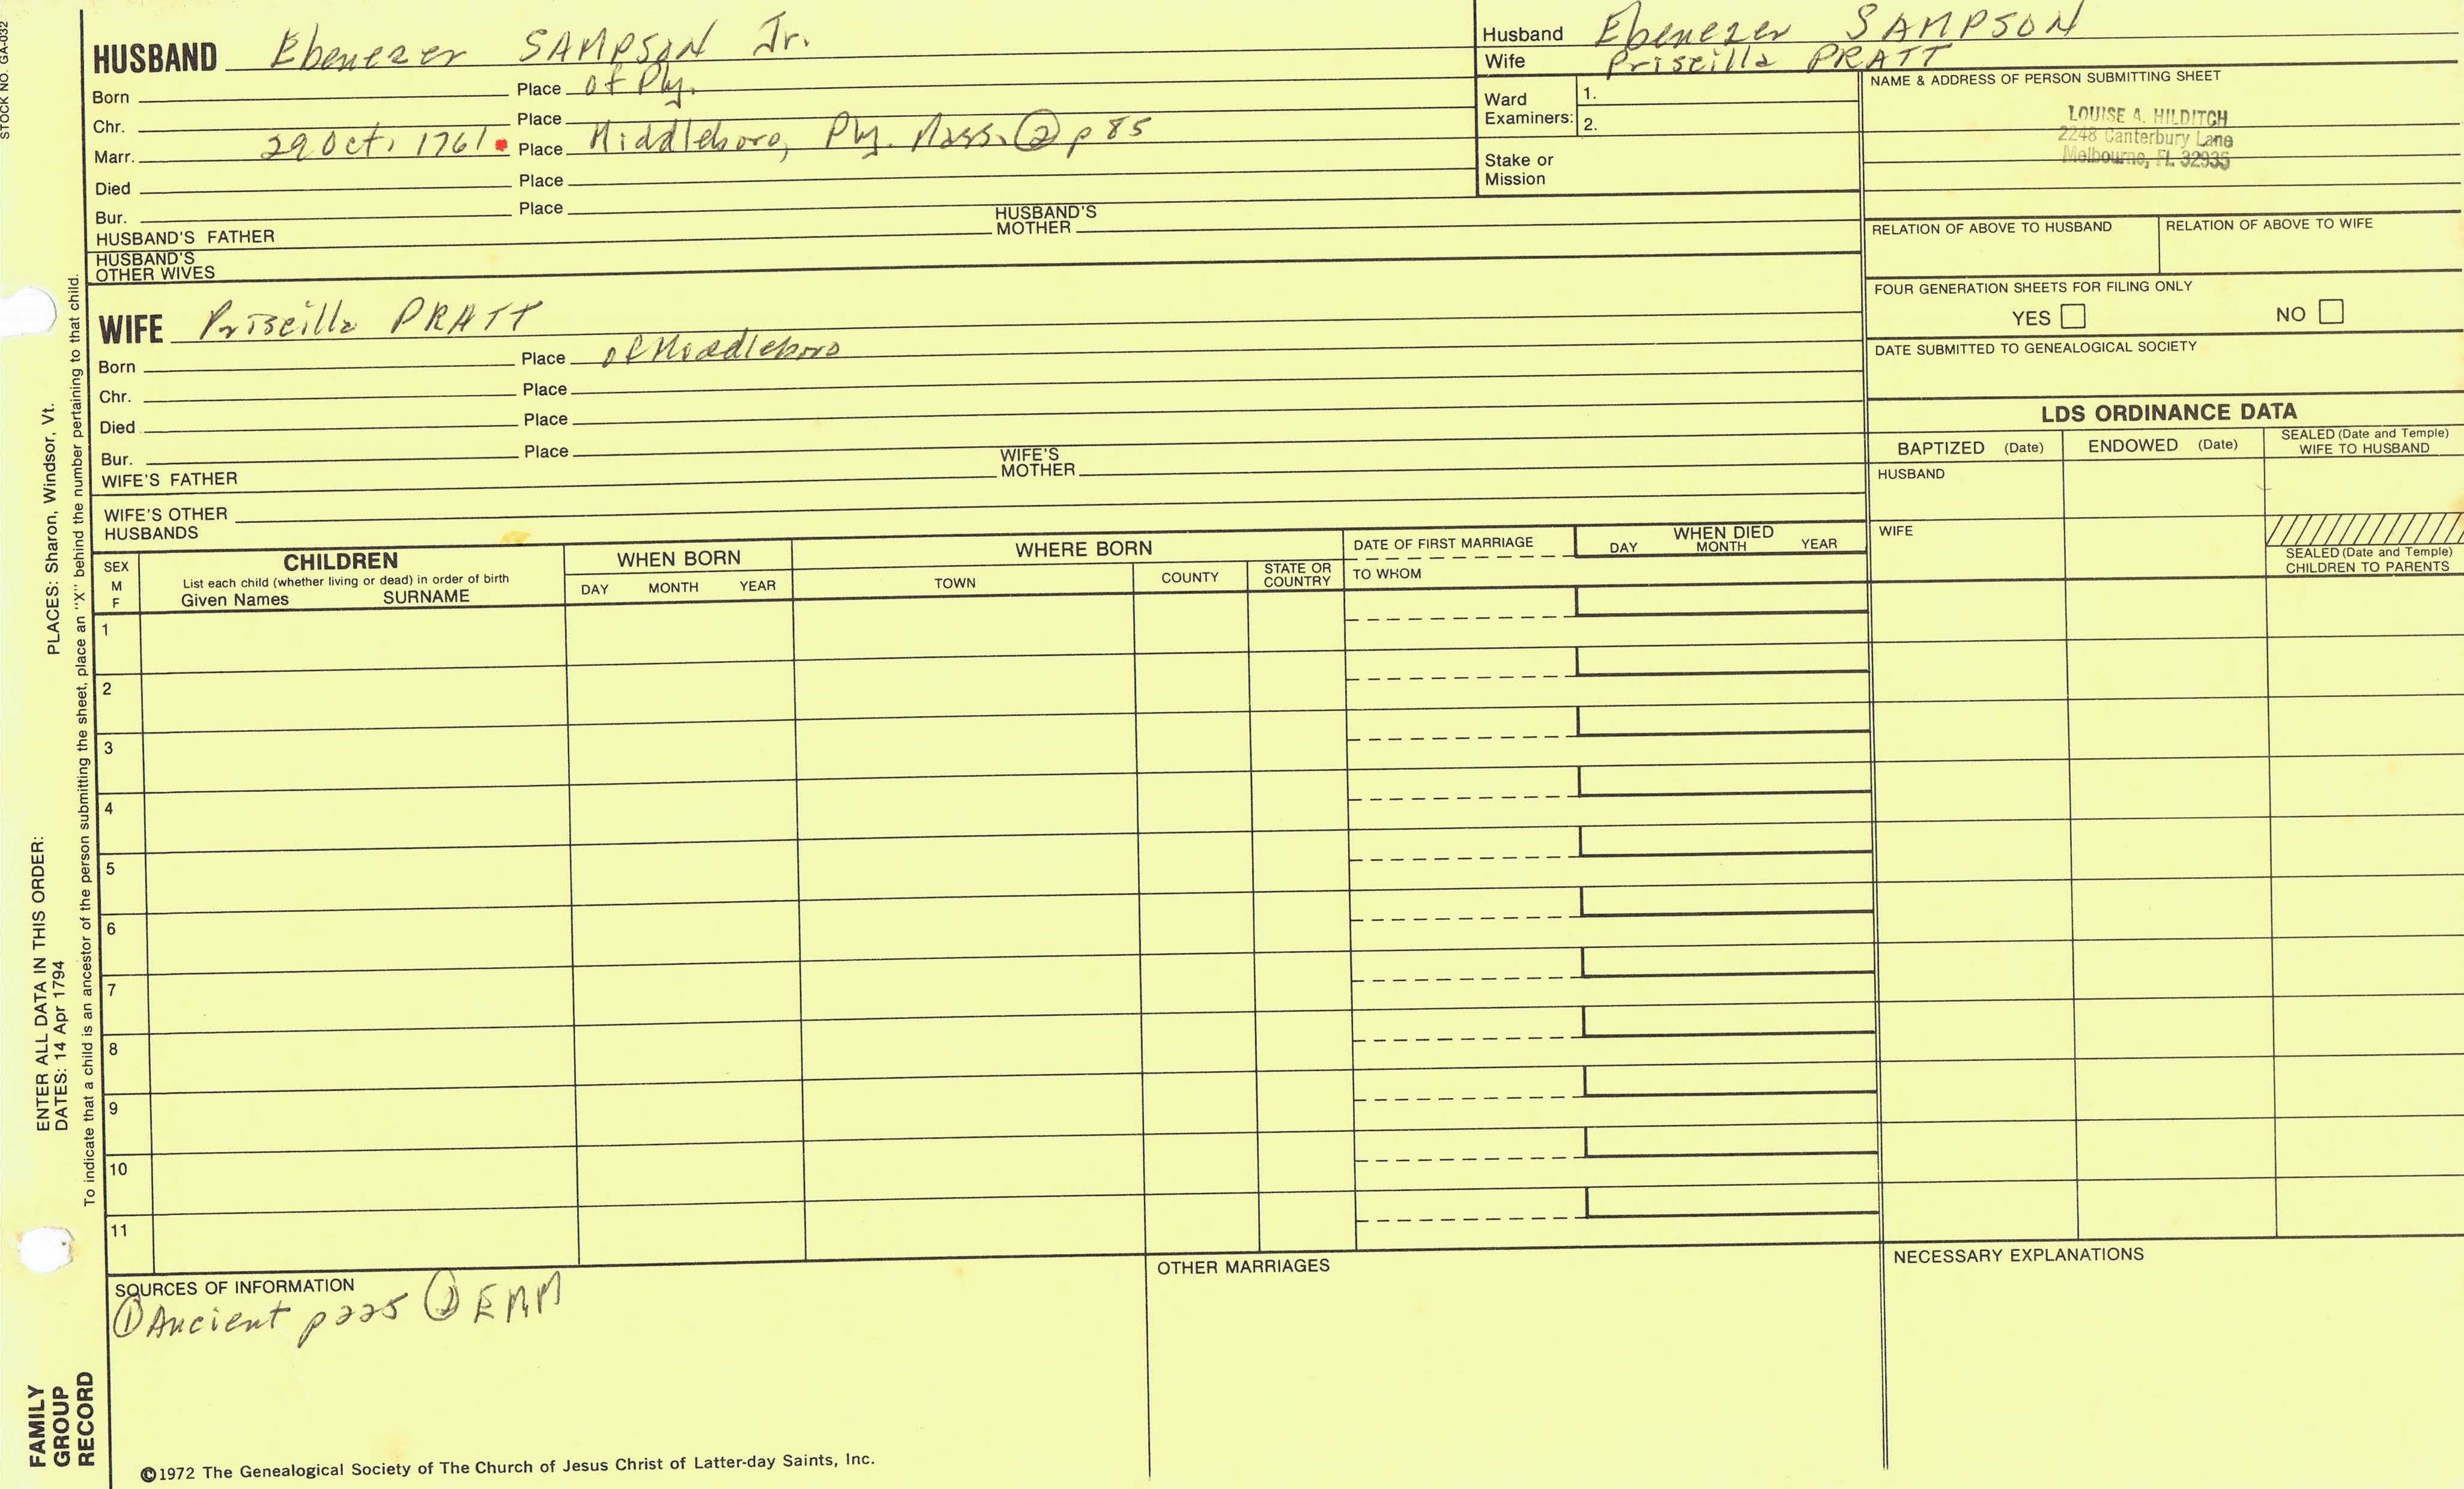 STOCK NO. GA-032
HUSBAND Ebenezer SAMPSON Jr.
Born Place of Ply.
Chr. Place
Marr. 29 Oct. 1761 Place Middleboro, Ply. Mass. ② p 85
Died Place
Bur. Place
HUSBAND'S FATHER HUSBAND'S MOTHER
HUSBAND'S OTHER WIVES
Husband Ebenezer SAMPSON
Wife Priscilla PRATT
Ward Examiners: 1.
2.
Stake or Mission
NAME & ADDRESS OF PERSON SUBMITTING SHEET
LOUISE A. HILDITCH
2248 Canterbury Lane
Melbourne, FL 32935
RELATION OF ABOVE TO HUSBAND RELATION OF ABOVE TO WIFE
FOUR GENERATION SHEETS FOR FILING ONLY
YES NO
DATE SUBMITTED TO GENEALOGICAL SOCIETY
WIFE Priscilla PRATT
Born Place of Middleboro
Chr. Place
Died Place
Bur. Place
WIFE'S FATHER WIFE'S MOTHER
WIFE'S OTHER HUSBANDS
LDS ORDINANCE DATA
BAPTIZED (Date) ENDOWED (Date) SEALED (Date and Temple) WIFE TO HUSBAND
HUSBAND
WIFE
SEALED (Date and Temple) CHILDREN TO PARENTS
SEX M F
CHILDREN
List each child (whether living or dead) in order of birth
Given Names SURNAME
WHEN BORN
DAY MONTH YEAR
WHERE BORN
TOWN COUNTY STATE OR COUNTRY
DATE OF FIRST MARRIAGE
TO WHOM
WHEN DIED
DAY MONTH YEAR
1
2
3
4
5
6
7
8
9
10
11
SOURCES OF INFORMATION
① Ancient p 225 ② EMM
OTHER MARRIAGES
NECESSARY EXPLANATIONS
©1972 The Genealogical Society of The Church of Jesus Christ of Latter-day Saints, Inc.
FAMILY GROUP RECORD
ENTER ALL DATA IN THIS ORDER:
DATES: 14 Apr 1794 PLACES: Sharon, Windsor, Vt.
To indicate that a child is an ancestor of the person submitting the sheet, place an "X" behind the number pertaining to that child.